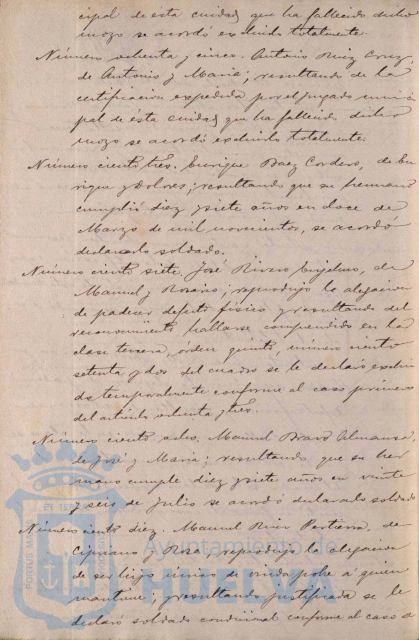 cipal de ésta ciudad que ha fallecido dicho
mozo se acordó excluirlo totalmente.
Número ochenta y cinco. Antonio Ruiz Cruz,
de Antonio y María; resultando de la
certificación expedida por el juzgado muni-
pal de ésta ciudad que ha fallecido dicho
mozo se acordó excluirlo totalmente.
Número ciento tres. Enrique Baez Cordero, de En
rique y Dolores; resultando que su hermano
cumplió diez y siete años en doce de
Marzo de mil novecientos, se acordó
declararlo soldado.
Número ciento siete. José Rivero de
Manuel y Rosario; reprodujo la alegación
de padecer defecto físico y resultando del
reconocimiento hallarse comprendido en la
clase tercera, órden quinto, número ciento
setenta y dos del cuadro se le declaró exclui
do temporalmente conforme al caso primero
del artículo ochenta y tres.
Número ciento ocho. Manuel Bravo Almansa,
de José y María; resultando que su her
mano cumple diez y siete años en veinte
y seis de Julio se acordó declararlo soldado
Número ciento diez. Manuel de
Cipriano y Rosa, reprodujo la alegación
de ser hijo único de viuda pobre a quien
mantiene; y resultando justificada se le
declaró soldado condicional conforme al caso
Ayuntamiento de
HUELVA